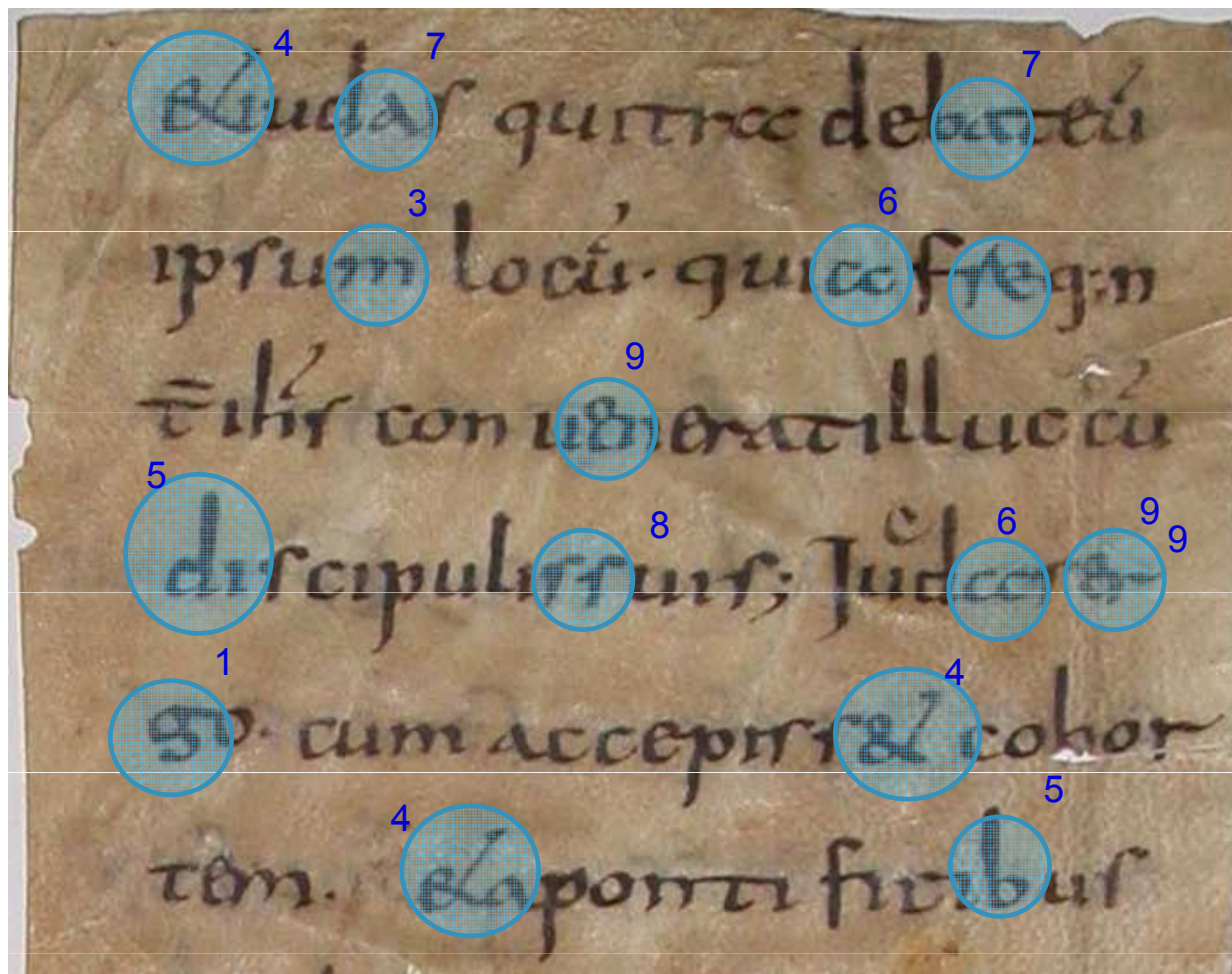 4 7 7
&iudas qui tradebateū
3 6
ipsum locū· quia freq:n
9
t̄ ihs conuenerat illuc cū
5 8 6 9 9
discipulis suis; Iudas er
1 4
go· cum accepiss& cohor
4 5
tem. &a pontificibus